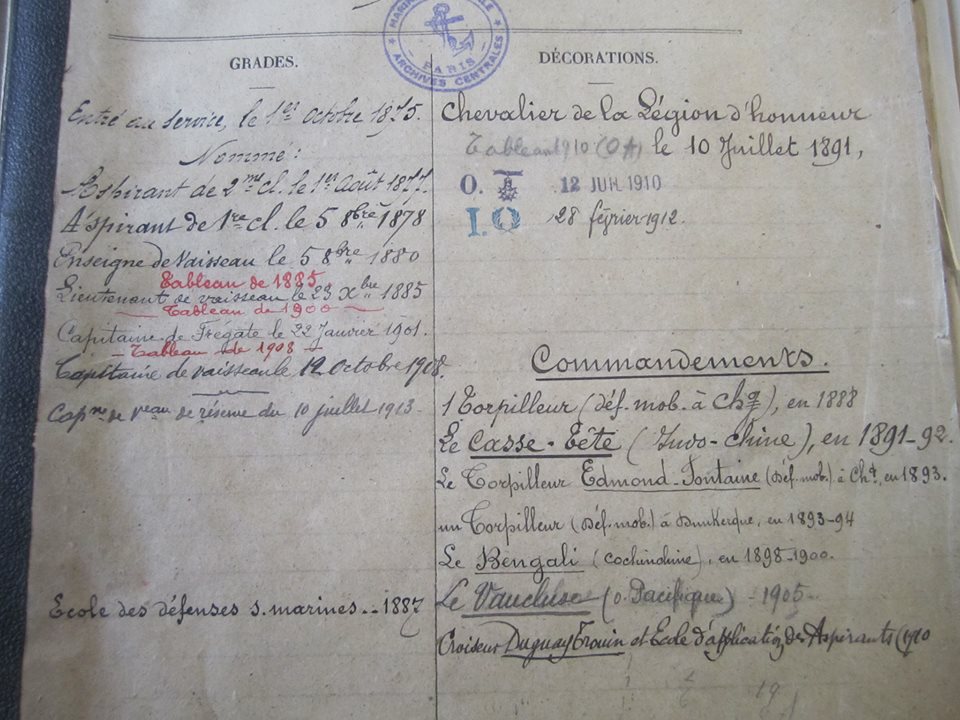 MARINE
ARCHIVES CENTRALES
PARIS
GRADES.
Entré au service, le 1er Octobre 1875.
Nommé :
Aspirant de 2me cl. le 1er Août 1877.
Aspirant de 1re cl. le 5 8bre 1878
Enseigne de Vaisseau le 5 8bre 1880
Tableau de 1885
Lieutenant de vaisseau le 23 Xbre 1885
Tableau de 1900
Capitaine de Frégate le 22 Janvier 1901.
Tableau de 1908
Capitaine de vaisseau le 12 Octobre 1908.
Capne de Veau de réserve du 10 juillet 1913
Ecole des défenses s. marines -- 1887
DÉCORATIONS.
Chevalier de la Légion d'honneur
Tableau 1910 (OA) le 10 Juillet 1891,
O. 12 JUIL 1910
I.O 28 février 1912.
Commandements.
1 Torpilleur (déf. mob. à Chg), en 1888
Le Casse-Tête (Indo-Chine), en 1891-92.
Le Torpilleur Edmond-Fontaine (Déf. mob.) à Chg, en 1893.
un Torpilleur (Déf. mob.) à Dunkerque, en 1893-94
Le Bengali (Cochinchine), en 1898-1900.
Le Vaucluse (o. Pacifique) - 1905
Croiseur Duguay Trouin et Ecole d'application des Aspirants (1910
19